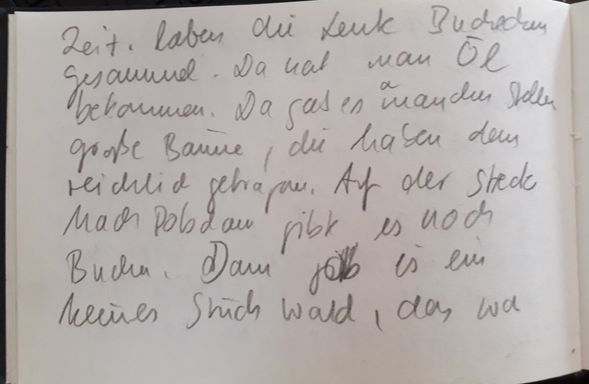 Zeit. haben die Leute Bucheckern
gesammelt. Da hat man Öl
bekommen. Da gab es a manchen Stellen
große Bäume, die haben dann
reichlich getragen. Auf der Strecke
Nach Potsdam gibt es noch
Buchen. Dann gab es ein
kleines Stück Wald, das wa